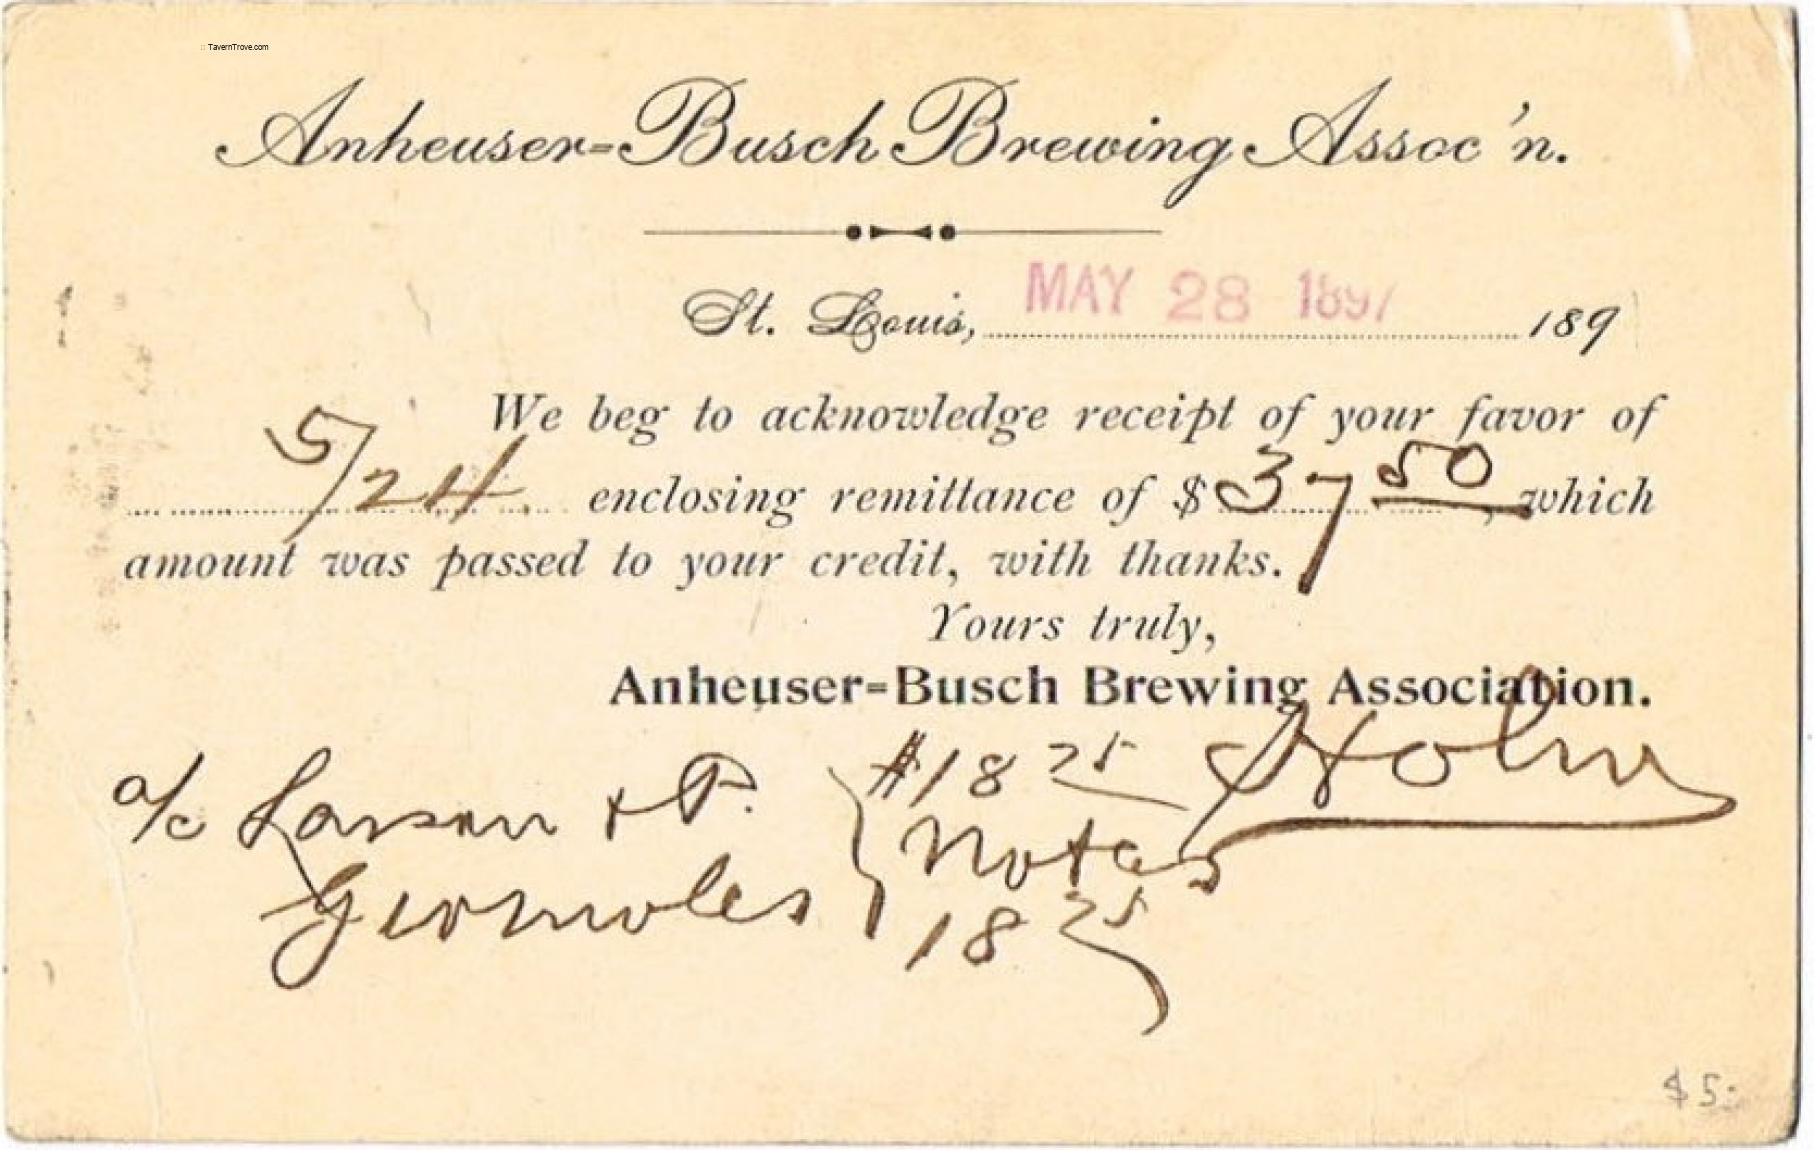 :: TavernTrove.com
Anheuser-Busch Brewing Assoc'n.
St. Louis, MAY 28 1897 189
We beg to acknowledge receipt of your favor of
5/24 enclosing remittance of $37 50, which
amount was passed to your credit, with thanks.
Yours truly,
Anheuser-Busch Brewing Association.
a/c Larsen + P. $18 75 Holm
Notes
18 75
$5